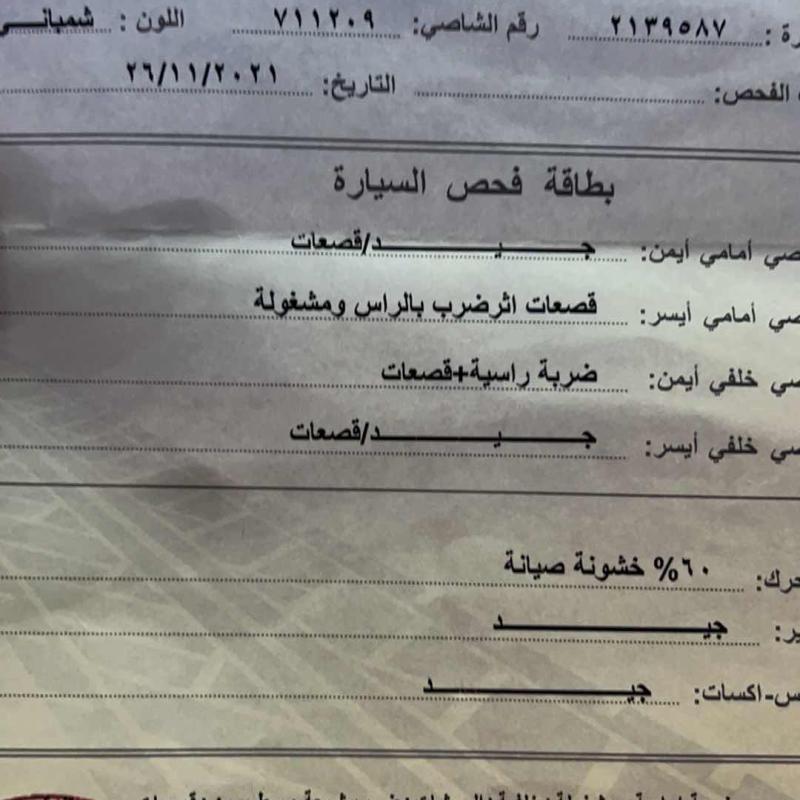 رة : ٢١٣٩٥٨٧ رقم الشاصي: ٧١١٢٠٩ اللون : شمباني
الفحص: التاريخ: ٢٦/١١/٢٠٢١
بطاقة فحص السيارة
صي أمامي أيمن: جـــيـــد/قصعات
صي أمامي أيسر: قصعات اثرضرب بالراس ومشغولة
صي خلفي أيمن: ضربة راسية+قصعات
صي خلفي أيسر: جـــيـــد/قصعات
حرك: ٦٠% خشونة صيانة
ير: جيـــد
س-اكسات: جيـــد